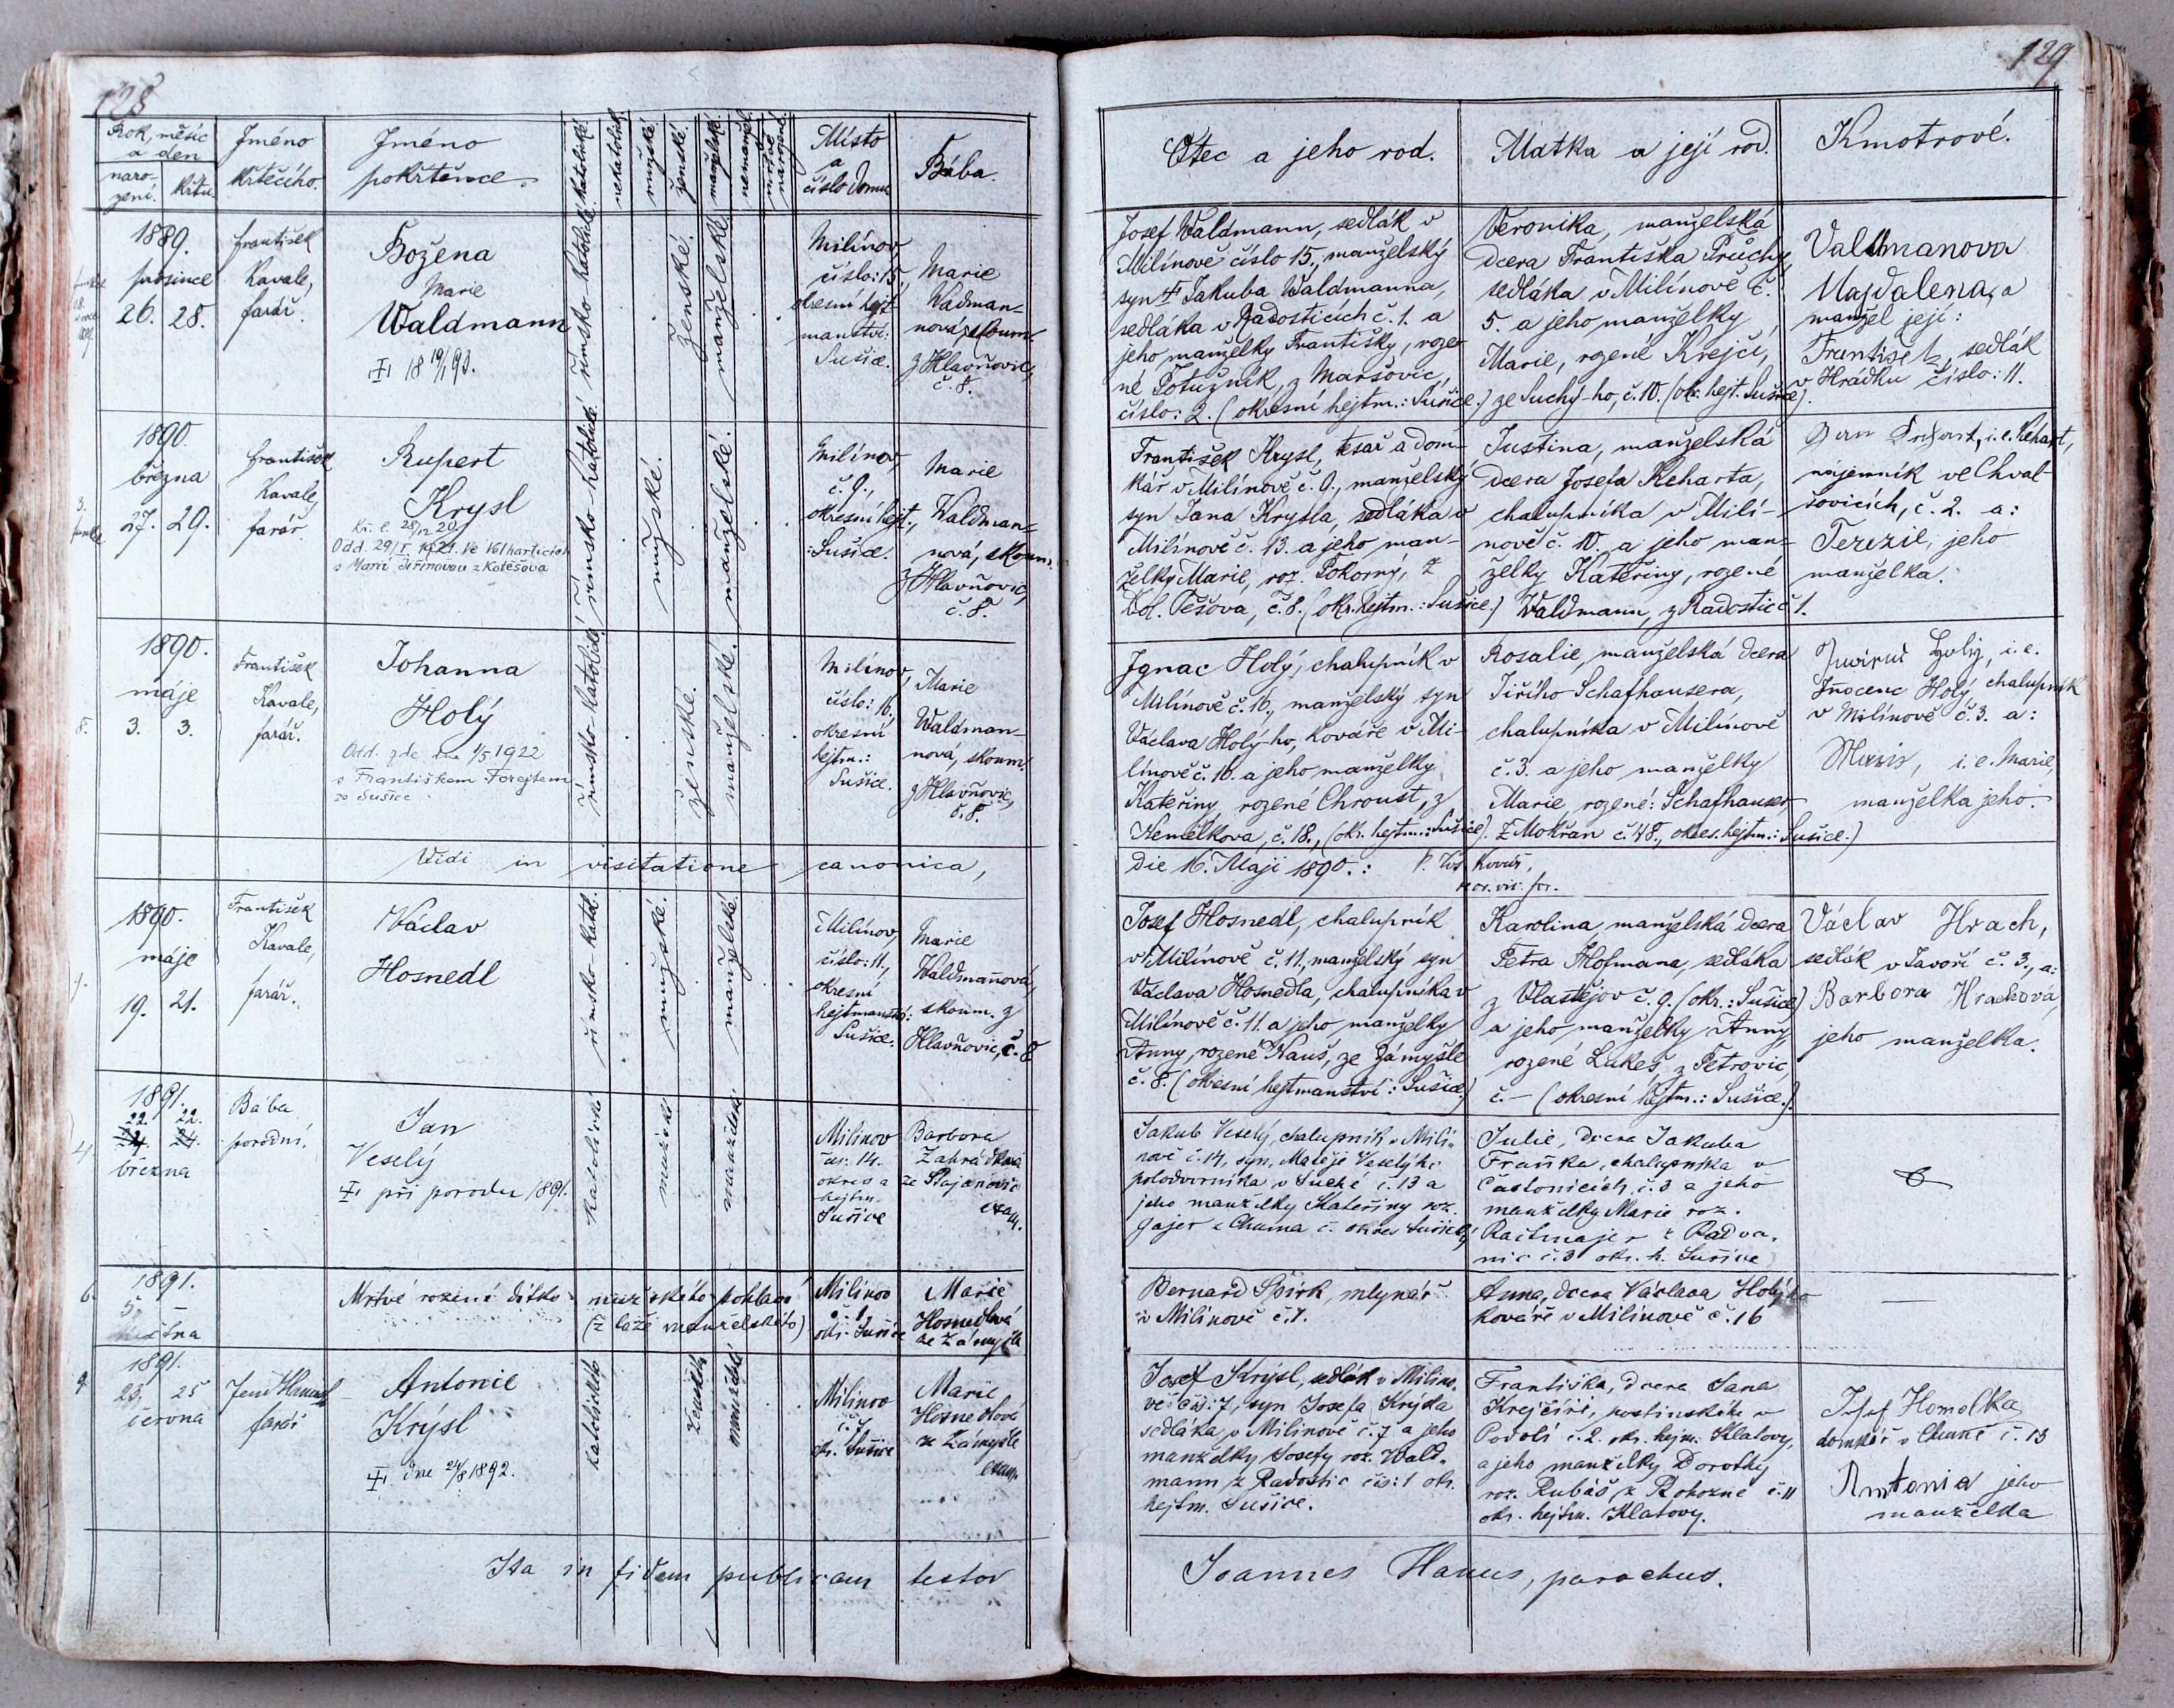 128
129
Rok, měsíc
a den
naro-
zení.
křtu.
Jméno
křtícího.
Jméno
pokřtěnce.
katolické.
nekatolické
mužské.
ženské.
manželské.
nemanžel.
mrtvě
narozené.
Místo
a
číslo domu
Bába.
Otec a jeho rod.
Matka a její rod.
Kmotrové.
1889.
prosince
26. 28.
František
Kavale,
farář.
Božena
Marie
Waldmann
18 19/1 93.
římsko-katolické.
ženské.
manželské.
Milínov,
číslo: 15,
okresní hejt-
manství:
Sušice.
Marie
Wadman-
nová,
z Hlavňovic,
č. 8.
Josef Waldmann, sedlák v
Milínově číslo 15., manželský
syn † Jakuba Waldmanna,
sedláka v Radosticích č. 1. a
jeho manželky Františky, roze-
né Potužník, z Maršovic,
číslo: 2. (okresní hejtm.: Sušice.)
Veronika, manželská
dcera Františka Průchy,
sedláka v Milínově č.
5. a jeho manželky
Marie, rozené Krejčí,
ze Suchý-ho, č. 10. (ok. hejt. Sušice).
Valdmanova
Majdalena, a
manžel její:
František, sedlák
v Hrádku číslo: 11.
1890.
března
27. 29.
František
Kavale,
farář.
Rupert
Krysl
Odd. 29/I. 1921. ve Volharticích
s Marií Jiřinovou z Kotěšova
římsko-katolické
mužské.
manželské.
Milínov,
č. 9.,
okresní hejt.,
: Sušice.
Marie
Waldman-
nová, skoum.
z Hlavňovic,
č. 8.
František Krysl, tesař a dom-
kář v Milínově č. 9., manželský
syn Jana Krysla, sedláka v
Milínově č. 13. a jeho man-
želky Marie, roz. Pokorný, z
Kol. Těšova, č. 8. (okr. hejtm.: Sušice.)
Justina, manželská
dcera Josefa Keharta,
chalupníka v Milí-
nově č. 10. a jeho man-
želky Kateřiny, rozené
Waldmann, z Radostic č. 1.
i.e. Kehart,
nájemník ve Chval-
šovicích, č. 2. a:
Terezie, jeho
manželka.
1890.
máje
3. 3.
František
Kavale,
farář.
Johanna
Holý
Odd. zde dne 1/5 1922
s Františkem Forejtem
ze Sušice
římsko-katolické.
ženské.
manželské.
Milínov,
číslo: 16,
okresní
hejtm.:
Sušice.
Marie
Waldman-
nová, skoum.
z Hlavňovic,
č. 8.
Ignac Holý, chalupník v
Milínově č. 16., manželský syn
Václava Holý-ho, kováře v Mi-
línově č. 16. a jeho manželky
Kateřiny, rozené Chroust, z
Nemelkova, č. 18., (ok. hejtm.: Sušice).
Rosalie, manželská dcera
Jiřího Schafhausera,
chalupníka v Milínově
č. 3. a jeho manželky
Marie, rozené: Schafhauser
z Mokřan č. 48., okres. hejtm.: Sušice.)
Holý, i.e.
Inocenc Holý, chalupník
v Milínově č. 3. a:
Marie, i.e. Marie,
manželka jeho.
Vidi in visitatione canonica,
die 16. Maji 1890.:
1890.
máje
19. 21.
František
Kavale,
farář.
Václav
Hosnedl
římsko-katol.
mužské.
manželské.
Milínov,
číslo: 11.,
okresní
hejtmanství:
Sušice.
Marie
Waldmanová,
skoum. z
Hlavňovic, č. 8
Josef Hosnedl, chalupník
v Milínově č. 11., manželský syn
Václava Hosnedla, chalupníka v
Milínově č. 11. a jeho manželky
Anny, rozené Hauš, ze Zámyšle
č. 8. (okresní hejtmanství: Sušice.)
Karolina, manželská dcera
Petra Hofmana, sedláka
z Vlastějov č. 9. (okr.: Sušice)
a jeho manželky Anny,
rozené Lukeš, z Petrovic,
č. – (okresní hejtm.: Sušice.).
Václav Hrach,
sedlák v Javoří č. 3., a:
Barbora Hrachová,
jeho manželka.
1891.
22. 22.
24. 24.
března
Bába
porodní.
Jan
Veselý
při porodu 1891.
katolické
mužské
manželské
Milínov
čís. 14.
okres a
hejtm.
Sušice
Barbora
Zahrádková
ze Stojanovic
Jakub Veselý, chalupník v Milí-
nově č. 14, syn Matěje Veselýho
polodvorníka v Suché č. 13 a
jeho manželky Kateřiny roz.
Gajer z Chuma č. okres Sušický
Julie, dcera Jakuba
Fraňka, chalupníka v
Častonicích č. 3 a jeho
manželky Marie roz.
Raitmajer z Radva-
nic č. 3 okr. h. Sušice
1891.
5. –
Mrtvě rozené dítko mužského pohlaví
(z lože manželského)
Milínov
č. 1
okr. Sušice
Marie
Hosnedlová
ze Zámyšle
Bernard Špirk, mlynář
v Milínově č. 1.
Anna, dcera Václava Holýho
kováře v Milínově č. 16
1891.
23. 25
června
Jan Hanuš
farář
Antonie
Krýsl
dne 24/8 1892.
katolické
ženské
manželské
Milínov
č. 7
okr. Sušice
Marie
Hosnedlová
ze Zámyšle
exam.
Josef Krýsl, sedlák v Milíno-
vě čís: 7, syn Josefa Krýsla
sedláka v Milínově č. 7 a jeho
manželky Josefy roz. Wald-
mann z Radostic čís: 1 okr.
hejtm. Sušice.
Františka, dcera Jana
Krejčího, hostinského v
Podolí č. 2. okr. hejtm. Klatovy,
a jeho manželky Dorothy
roz. Rubáš z Rohozné č. 11
okr. hejtm. Klatovy.
Josef Homolka
domkář v Chumě č. 13
Antonie jeho
manželka
Ita in fidem publicam testor
Joannes Hanus, parochus.